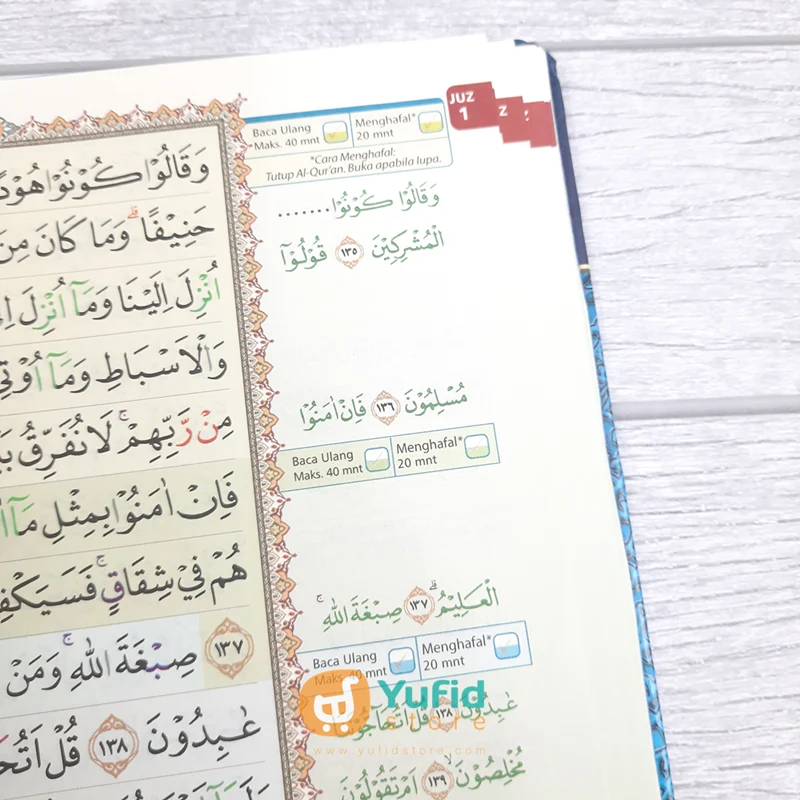 JUZ
1
Z
Baca Ulang
Maks. 40 mnt
Menghafal*
20 mnt
*Cara Menghafal:
Tutup Al-Qur'an. Buka apabila lupa.
وَقَالُوْا كُوْنُوْا.......
الْمُشْرِكِيْنَ ١٣٥ قُوْلُوْٓا
مُسْلِمُوْنَ ١٣٦ فَاِنْ اٰمَنُوْا
Baca Ulang
Maks. 40 mnt
Menghafal*
20 mnt
الْعَلِيْمُ ۗ ١٣٧ صِبْغَةَ اللّٰهِ ۚ
Baca Ulang
Maks. 40 mnt
Menghafal*
20 mnt
عٰبِدُوْنَ ١٣٨ قُلْ اَتُحَاجُّوْنَ
مُخْلِصُوْنَ ۙ ١٣٩ اَمْ تَقُوْلُوْنَ
وَقَالُوْا كُوْنُوْا هُوْدًا
حَنِيْفًا ۗ وَمَا كَانَ مِنَ
اُنْزِلَ اِلَيْنَا وَمَآ اُنْزِلَ
وَالْاَسْبَاطِ وَمَآ اُوْتِيَ
مِنْ رَّبِّهِمْ ۚ لَا نُفَرِّقُ
فَاِنْ اٰمَنُوْا بِمِثْلِ مَآ
هُمْ فِيْ شِقَاقٍ ۚ
١٣٧ صِبْغَةَ اللّٰهِ ۚ وَمَنْ
عٰبِدُوْنَ ١٣٨ قُلْ
Yufid
store
www.yufidstore.com